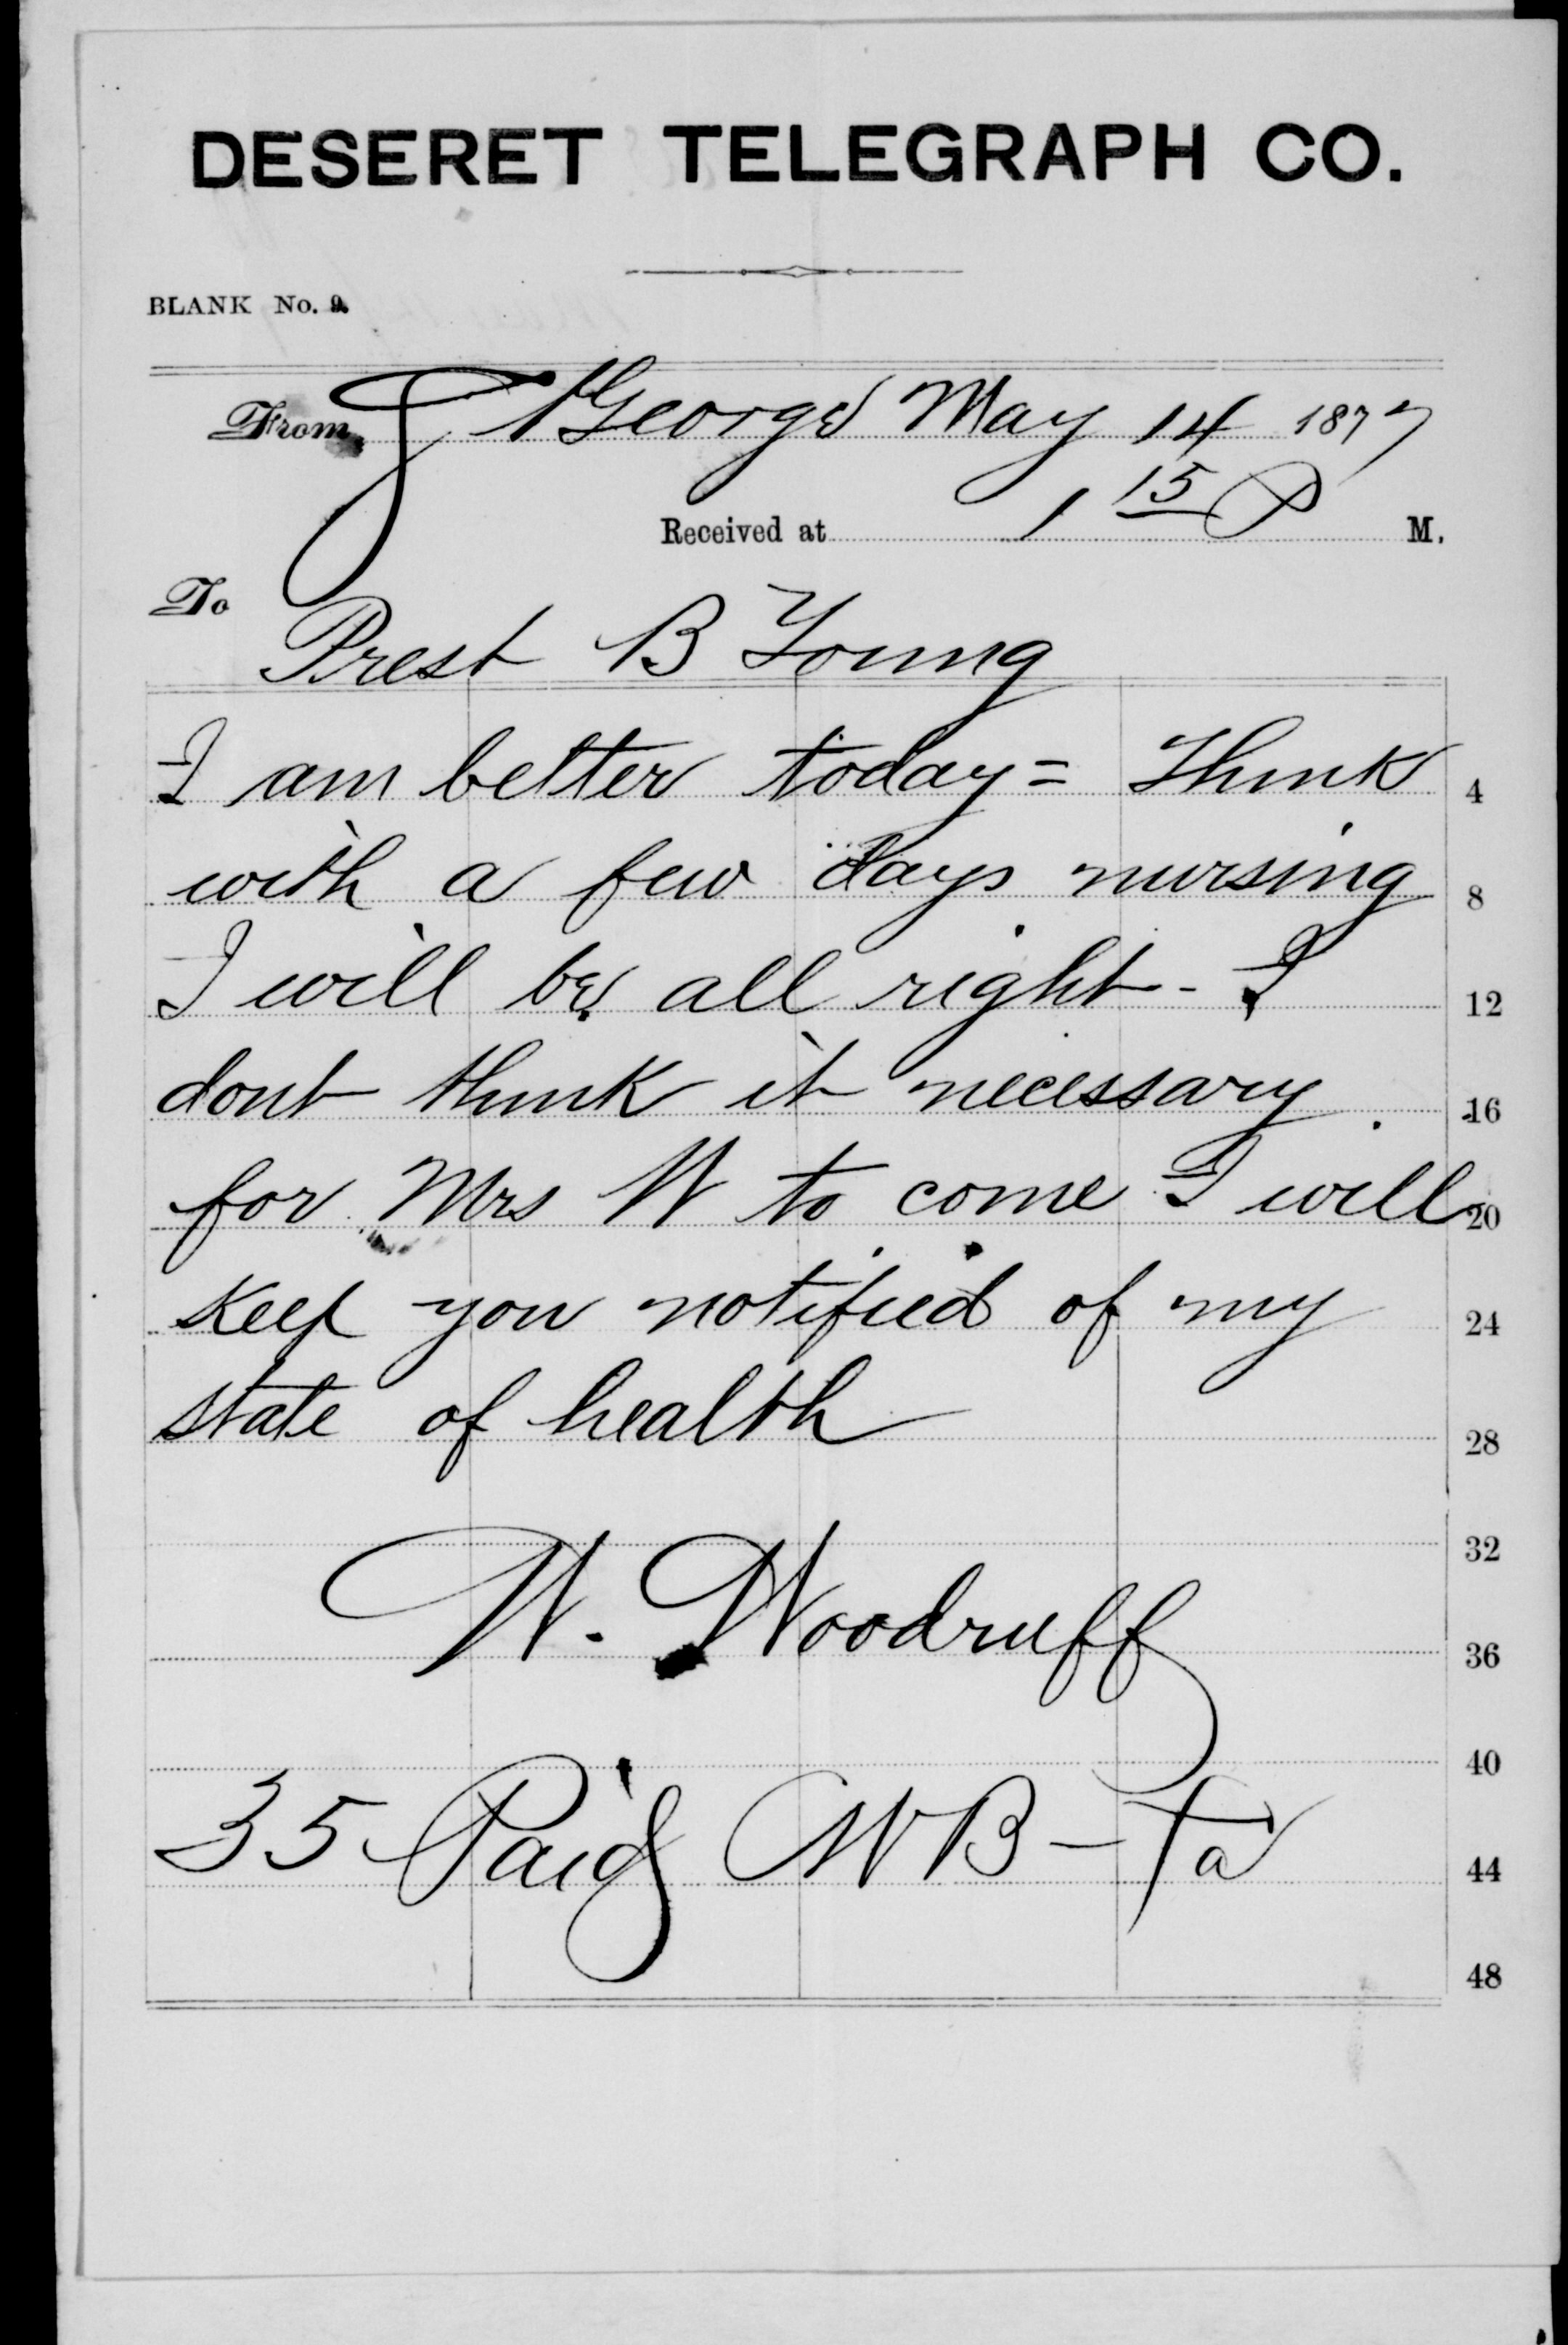 DESERET TELEGRAPH CO.
BLANK No. 9.
From St George May 14 1877
Received at 1 15 P M.
To
Prest B Young
I am better today = Think 4
with a few days nursing 8
I will be all right - I 12
dont think it necessary 16
for Mrs W to come I will 20
keep you notified of my 24
state of health 28
32
W. Woodruff 36
40
35 Paid WB - Ta 44
48